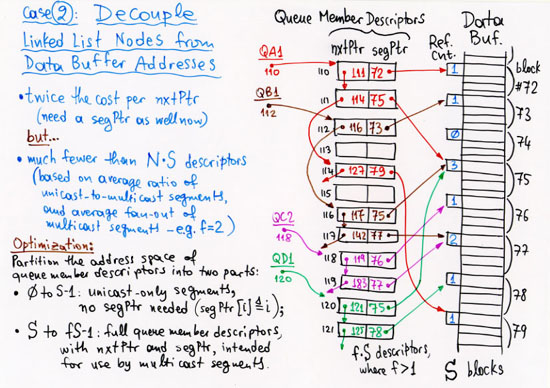 Case ②: Decouple
Linked List Nodes from
Data Buffer Addresses
• twice the cost per nxtPtr
(need a segPtr as well now)
but...
• much fewer than N·S descriptors
(based on average ratio of
unicast-to-multicast segments,
and average fan-out of
multicast segments – e.g. f=2)
Optimization:
Partition the address space of
queue member descriptors into two parts:
• Ø to S-1: unicast-only segments,
no segPtr needed (segPtr[i]≜i);
• S to fS-1: full queue member descriptors,
with nxtPtr and segPtr, intended
for use by multicast segments.
Queue Member Descriptors
nxtPtr segPtr
QA1
110
QB1
112
QC2
118
QD1
120
110 111 72
111 114 75
112 116 73
113
114 127 79
115
116 117 75
117 142 77
118 119 76
119 183 77
120 121 75
121 125 78
f·S descriptors,
where f>1
Ref.
Cnt.
1
1
Ø
3
1
2
1
1
Data
Buf.
block
#72
73
74
75
76
77
78
79
S blocks